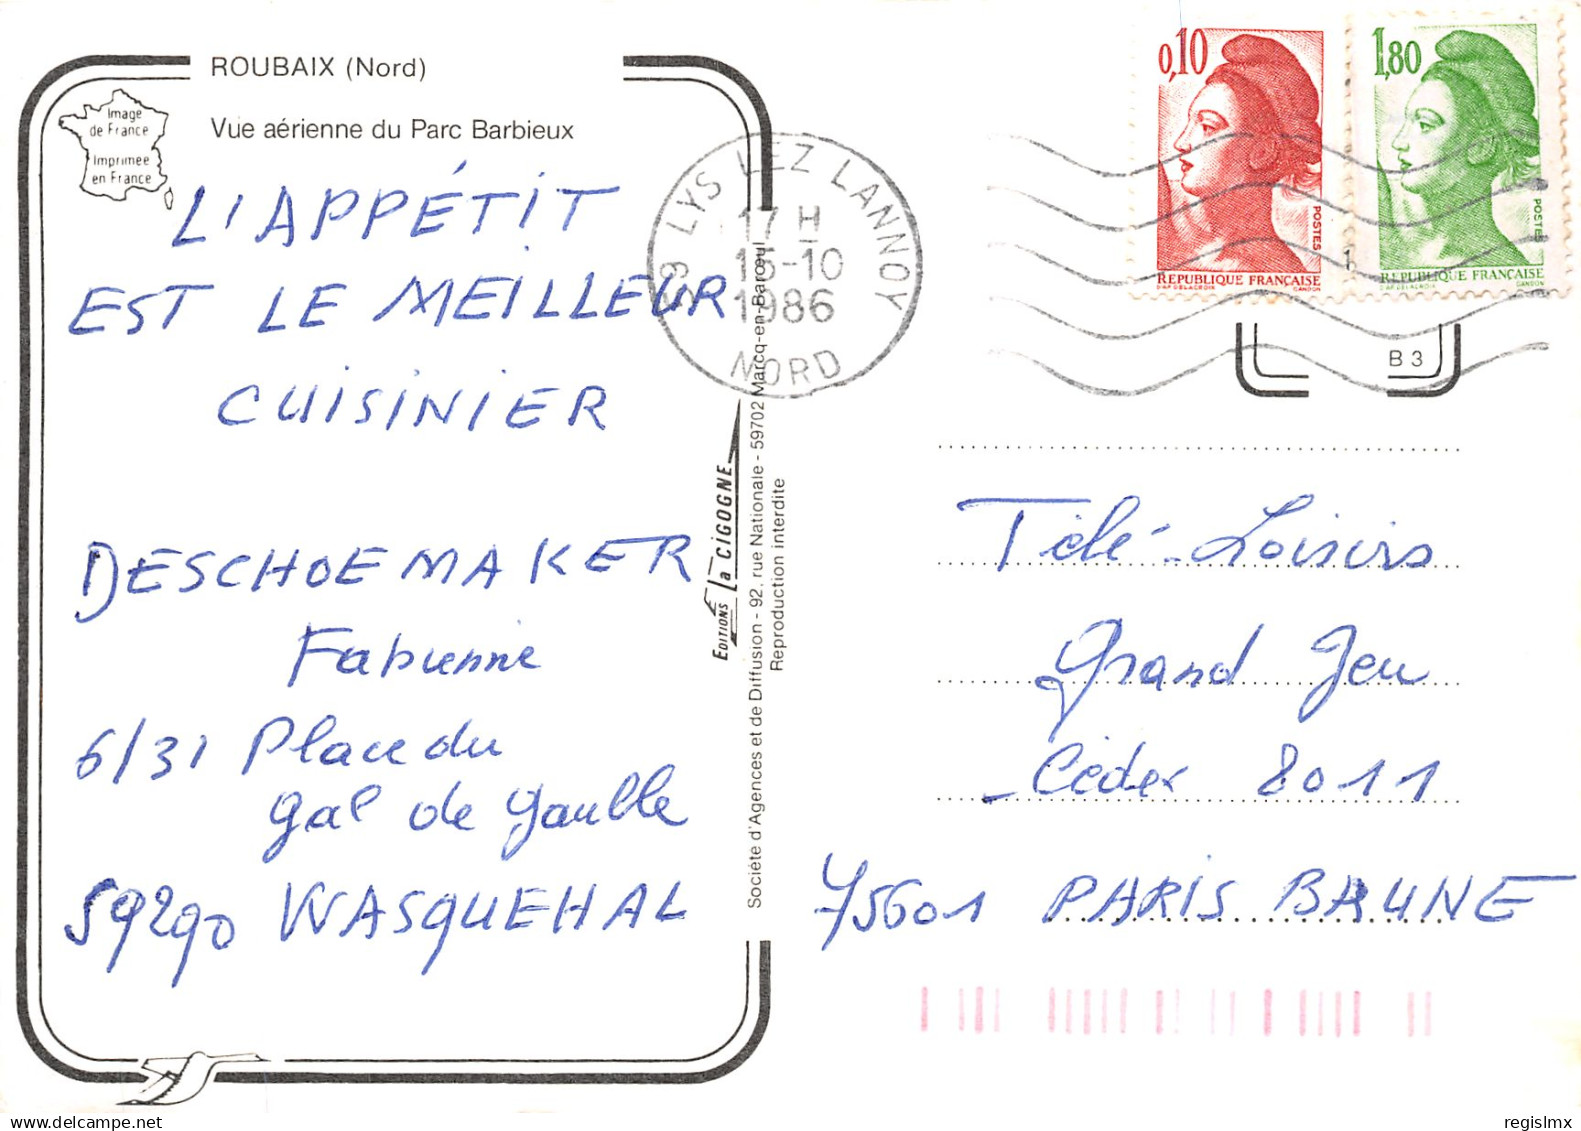 ROUBAIX (Nord)
Vue aérienne du Parc Barbieux
Image
de France
Imprimée
en France
L'APPÉTIT
EST LE MEILLEUR
CUISINIER
DESCHOEMAKER
Fabienne
6/31 Place du
gal de Gaulle
59290 WASQUEHAL
EDITIONS La CIGOGNE
Société d'Agences et de Diffusion - 92, rue Nationale - 59702 Marcq-en-Barœul
Reproduction interdite
59 LYS LEZ LANNOY
17 H
15-10
1986
NORD
0,10
POSTES
REPUBLIQUE FRANÇAISE
D'AP. DELACROIX GANDON
1,80
POSTES
REPUBLIQUE FRANÇAISE
D'AP. DELACROIX GANDON
1
B 3
Télé-Loisirs
Grand Jeu
Cédex 8011
75601 PARIS BRUNE
regislmx